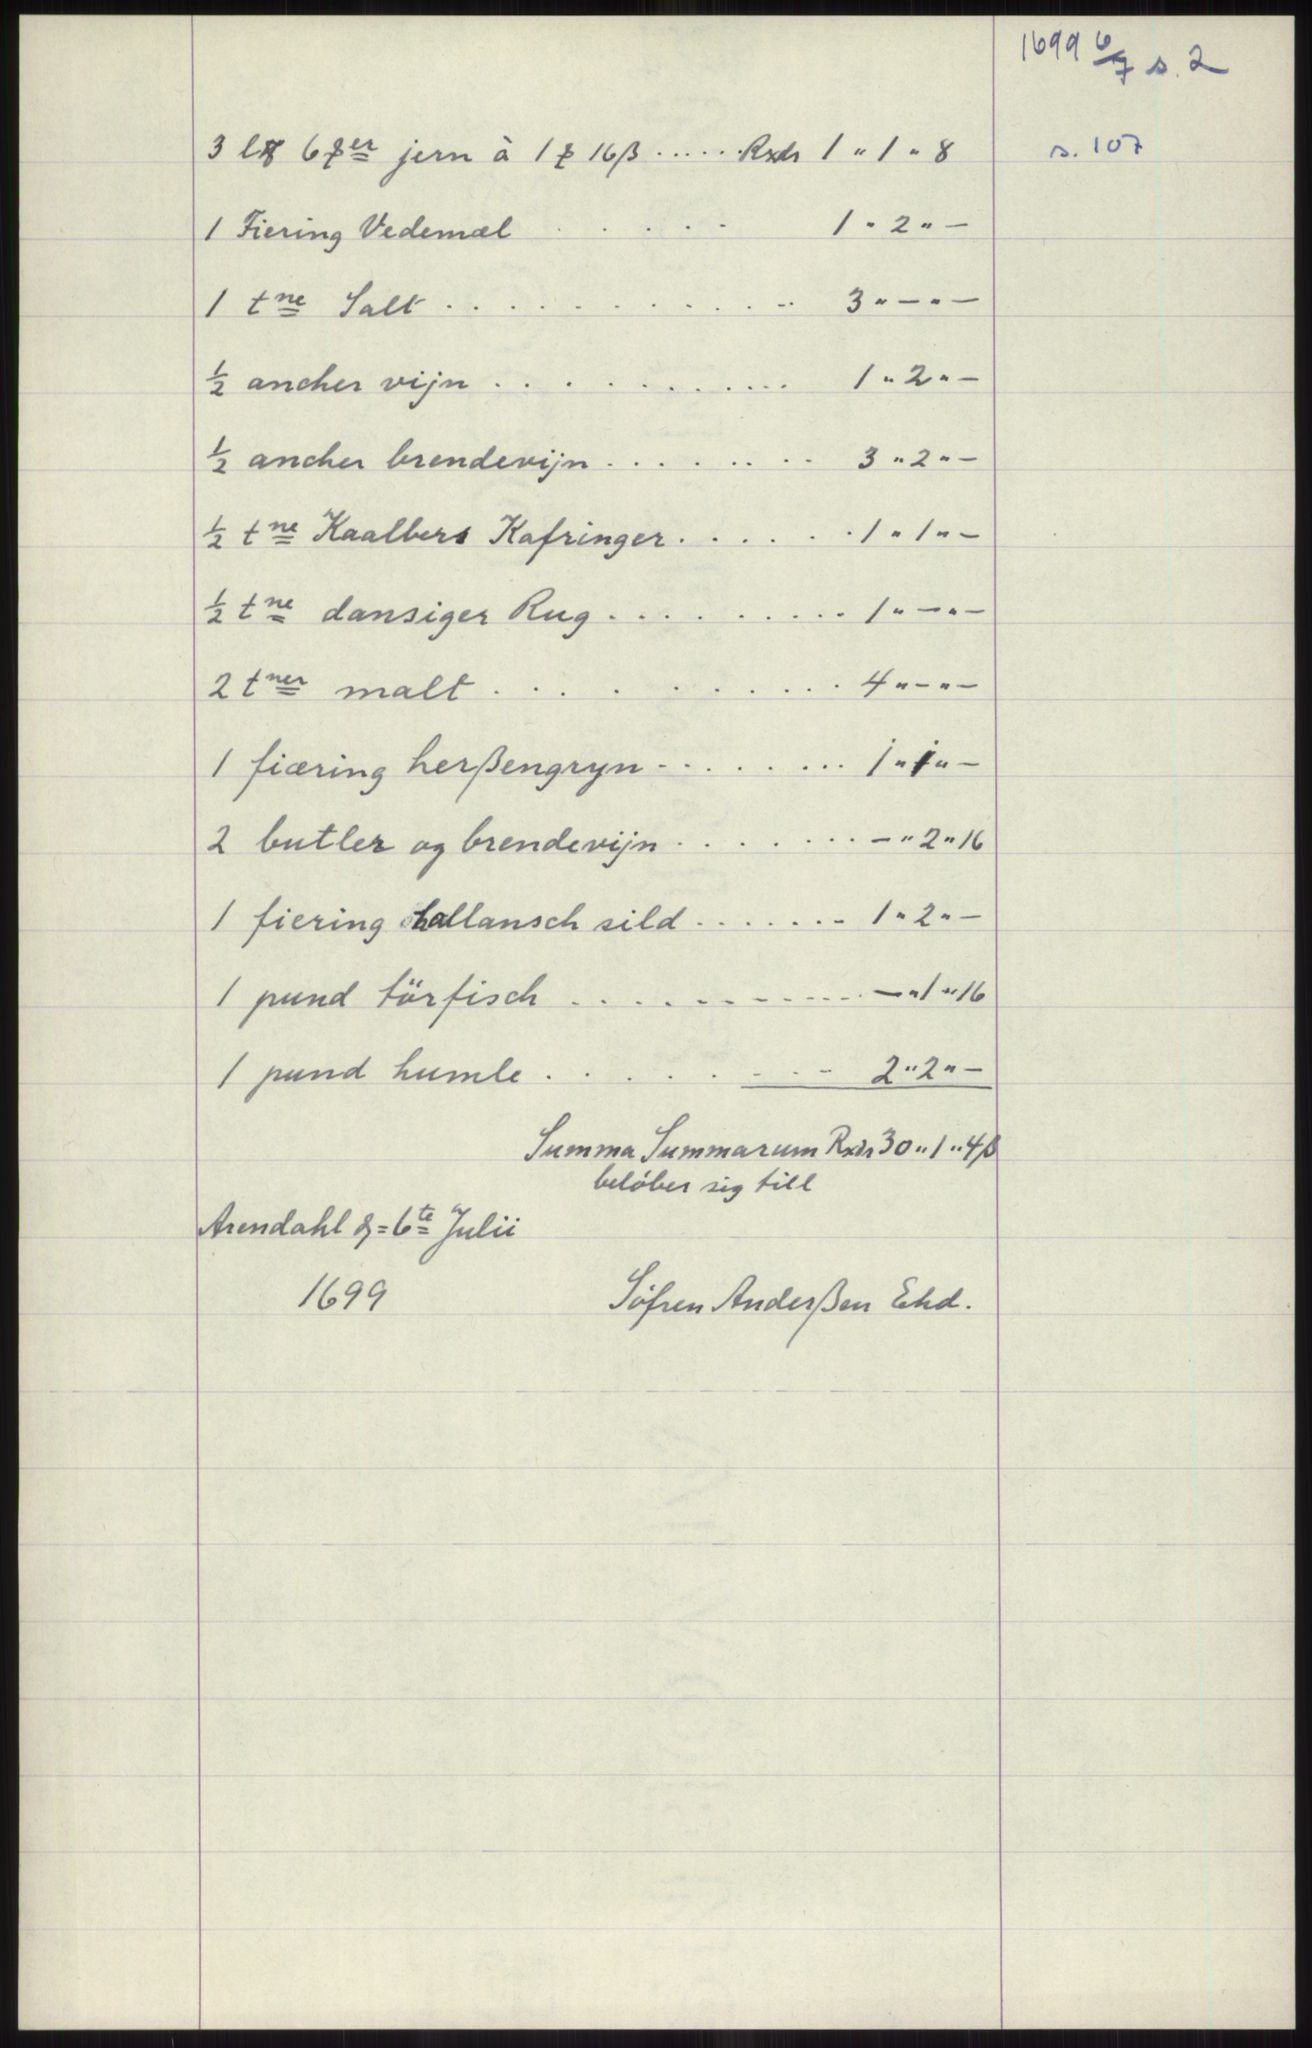 1699 6/7 s. 2
s. 107
3 l℔ 6 ℔er jern à 1 ℔ 16β ...... Rxdr 1 " 1 " 8
1 Fiering Vedemæl . . . . . 1 " 2 " —
1 tne Salt . . . . . . . . . . 3 " — " —
½ ancher vijn . . . . . . . . . . 1 " 2 " —
½ ancher brendevijn . . . . . . . . 3 " 2 " —
½ tne Kaalbers Kafringer . . . . . . 1 " 1 " —
½ tne dansiger Rug . . . . . . . . . 1 " — " —
2 tner malt . . . . . . . . . . 4 " — " —
1 fiæring herßengryn - . . . . . . . 1 " 1 " —
2 butler og brendevijn . . . . . . . — " 2 " 16
1 fiering hallansch sild . . . . . . - 1 " 2 " —
1 pund törfisch . . . . . . . . . . — " 1 " 16
1 pund humle . . . . . . . . 2 " 2 " —
Summa Summarum Rxdr 30 " 1 " 4β
belöber sig till
Arendahl = 6te Julii
1699 Söfren Anderßen Ehd.